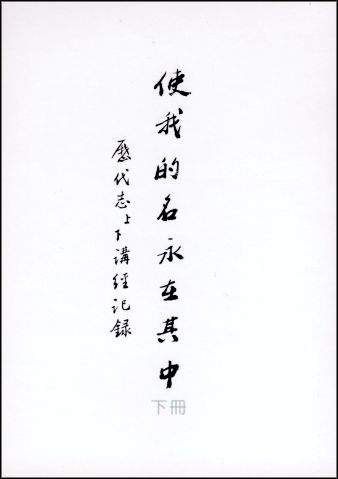 使我的名永在其中
歷代志上下講經記錄
下冊